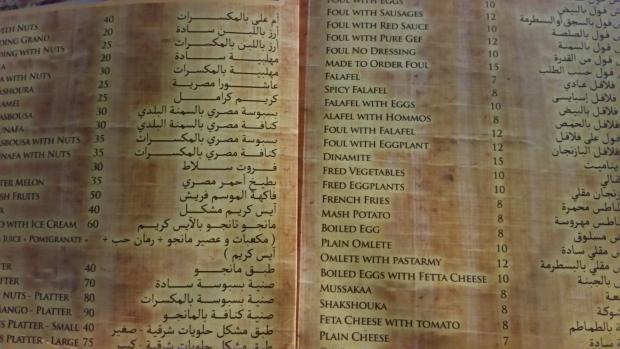 WITH NUTS 40 أم على بالمكسرات
DING GRAND 20 أرز باللبن سادة
DING WITH NUTS 30 أرز باللبن بالمكسرات
20 مهلبية سادة
A WITH NUTS 30 مهلبية بالمكسرات
ASHOURA 25 عاشورا مصرية
AMEL 25 كريم كرامل
ASBOUSA 30 بسبوسة مصري بالسمنة البلدي
UNAFA 30 كنافة مصري بالسمنة البلدي
ASBOUSA WITH NUTS 35 بسبوسة مصري بالمكسرات
UNAFA WITH NUTS 35 كنافة مصري بالمكسرات
30 فروت سلاط
TER MELON 35 بطيخ أحمر مصري
SH FRUITS 50 فاكهة الموسم فريش
40 آيس كريم مشكل
O WITH ICE CREAM 60 مانجو تانجو بالآيس كريم
JUICE + POMIGRANATE + ( مكعبات و عصير مانجو + رمان حب +
آيس كريم )
TTER 40 طبق مانجو
TTER 70 صنية بسبوسة سادة
NUTS - PLATTER 80 صنية بسبوسة بالمكسرات
ANGO - PLATTER 90 صنية كنافة بالمانجو
S PLATTER - SMALL 40 طبق مشكل حلويات شرقية - صغير
S PLATTER - LARGE 75 طبق مشكل حلويات شرقية - كبير
FOUL WITH EGGS 10 فول بالبيض
FOUL WITH SAUSAGES 12 فول بالسجق أو البسطرمة
FOUL WITH RED SAUCE 10 فول بالصلصة
FOUL WITH PURE GEF 12 فول بالسمنة
FOUL NO DRESSING 10 فول من القدرة
MADE TO ORDER FOUL 15 فول حسب الطلب
FALAFEL 7 فلافل عادي
SPICY FALAFEL 8 فلافل إسبايسي
FALAFEL WITH EGGS 10 فلافل بالبيض
ALAFEL WITH HOMMOS 8 فلافل بالحمص
FOUL WITH FALAFEL 12 فول على فلافل
FOUL WITH EGGPLANT 12 البازنجان
DINAMITE 15
FRED VEGETABLES 10
FRED EGGPLANTS 10 مقلي
FRENCH FRIES 8 محمرة
MASH POTATO 8 مهروسة
BOILED EGG 8 مسلوق
PLAIN OMLETE 8 مقلي سادة
OMLETE WITH PASTARMY 12 مقلي بالبسطرمة
BOILED EGGS WITH FETTA CHEESE 10 بالجبنة
MUSSAKAA 8
SHAKSHOUKA 8
FETA CHEESE WITH TOMATO 8 بالطماطم
PLAIN CHEESE 7 سادة